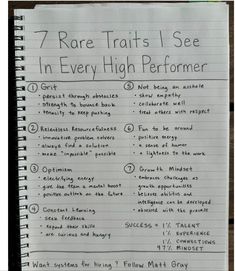 7 Rare Traits I See
In Every High Performer
① Grit
• persist through obstacles
• strength to bounce back
• tenacity to keep pushing
② Relentless Resourcefulness
• innovative problem solvers
• always find a solution
• make "impossible" possible
③ Optimism
• electrifying energy
• give the team a mental boost
• positive outlook on the future
④ Constant Learning
• seek feedback
• expand their skills
• are curious and hungry
⑤ Not being an asshole
• show empathy
• collaborate well
• treat others with respect
⑥ Fun to be around
• positive energy
• a sense of humor
• a lightness to the work
⑦ Growth Mindset
• embraces challenges as
growth opportunities
• believes abilities and
intelligence can be developed
• obsessed with the process
SUCCESS = 1% TALENT
1% EXPERIENCE
1% CONNECTIONS
97% MINDSET
Want systems for hiring? Follow Matt Gray